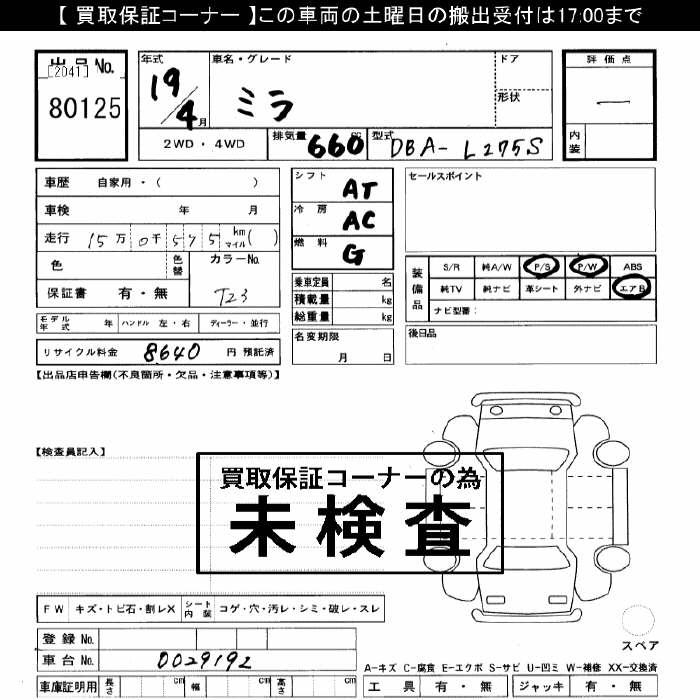 【 買取保証コーナー 】この車両の土曜日の搬出受付は17:00まで
出品No.
[2041]
80125
年式
19/4月
車名・グレード
ミラ
ドア
形状
評価点
―
内装
2WD・4WD
排気量 660 cc
型式 DBA-L275S
車歴 自家用・( )
車検 年 月
走行 15万0千575 km マイル( )
色 色替 カラーNo.
保証書 有・無 T23
モデル年式 年 ハンドル 左・右 ディーラー・並行
リサイクル料金 8640 円 預託済
シフト AT
冷房 AC
燃料 G
乗車定員 名
積載量 kg
総重量 kg
名変期限
月 日
セールスポイント
装備品
S/R 純A/W P/S P/W ABS
純TV 純ナビ 革シート 外ナビ エアB
ナビ型番:
後日品
【出品店申告欄(不良箇所・欠品・注意事項等)】
【検査員記入】
買取保証コーナーの為
未検査
FW キズ・トビ石・割レX シート内装 コゲ・穴・汚レ・シミ・破レ・スレ
登録No.
車台No. 0029192
車庫証明用 長さ cm 幅 cm 高さ cm
スペア
A-キズ C-腐食 E-エクボ S-サビ U-凹ミ W-補修 XX-交換済
工具 有・無 ジャッキ 有・無